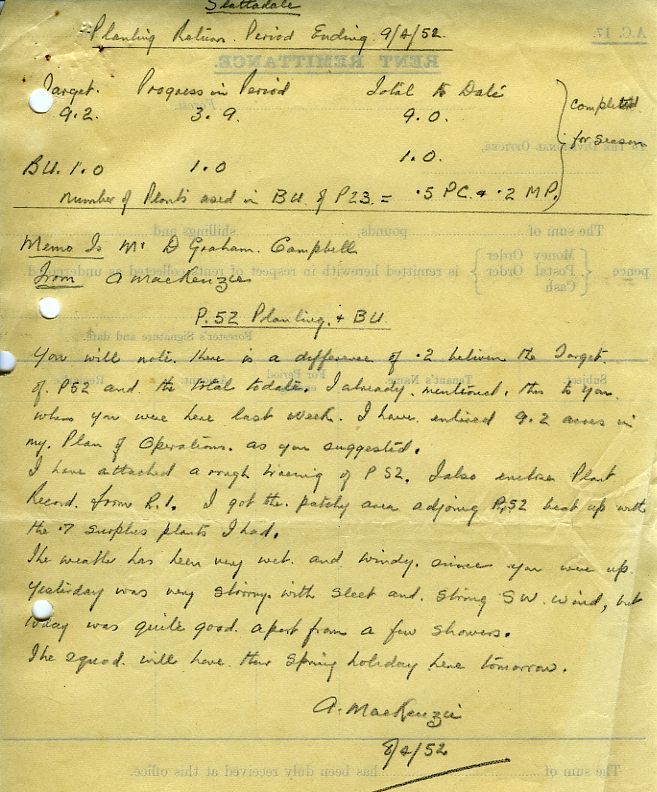 Slattadale
Planting Return. Period Ending 9/4/52.
A.C. 17.
RENT REMITTANCE.
Target. Progress in Period Total to Date
9.2. 3.9. 9.0. completed
for season
To The Divisional Officer.
1.0.
BU. 1.0 1.0
Number of Plants used in BU. of P23. = .5 PC. & .2 MP.
The sum of pounds, shillings and
Memo To Mr D Graham. Campbell
Money Order
pence Postal Order is remitted herewith in respect of rents collected as undernoted.
Cash
From A MacKenzie
P.52 Planting. & BU.
Forester's Signature and date.
You will note. there is a difference of .2 between the Target.
For Period
Subject Tenant's Name.
of P52 and the total todate. I already. mentioned, this to you.
when you were here last week. I have entered 9.2 acres in
my. Plan of Operations. as you suggested.
I have attached a rough tracing of P 52. I also enclose Plant
Record. from R.1. I got the. patchy area adjoing P.52 beat up with
the .7 surplus plants I had.
The weather has been very wet. and windy. since you were up.
Yesterday was very stormy. with sleet and. strong SW. wind, but
today was quite good. apart from a few showers.
The squad. will have their Spring holiday here tomorrow.
A. MacKenzie
8/4/52
The sum of has been duly received at this office.